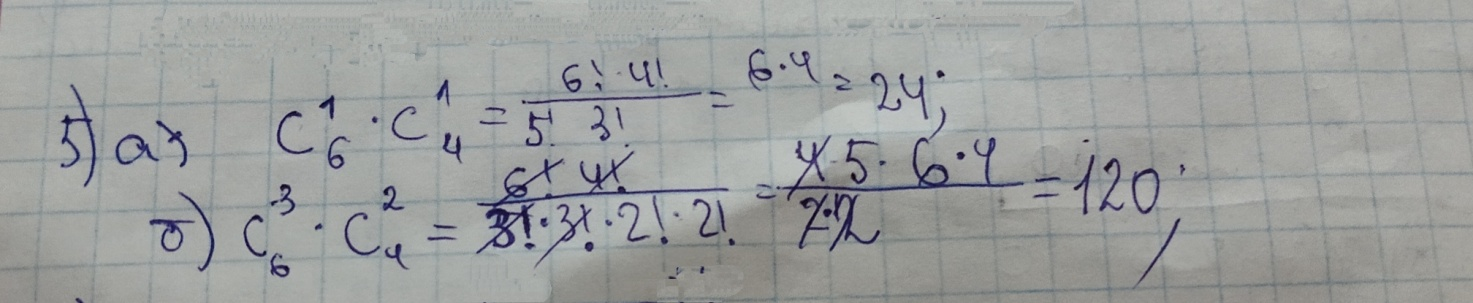 5) а) C₆¹ · C₄¹ = (6! · 4!)/(5! 3!) = 6·4 = 24;
б) C₆³ · C₄² = (6! 4!)/(3! · 3! · 2! · 2!) = (4·5·6·4)/(2·2) = 120;